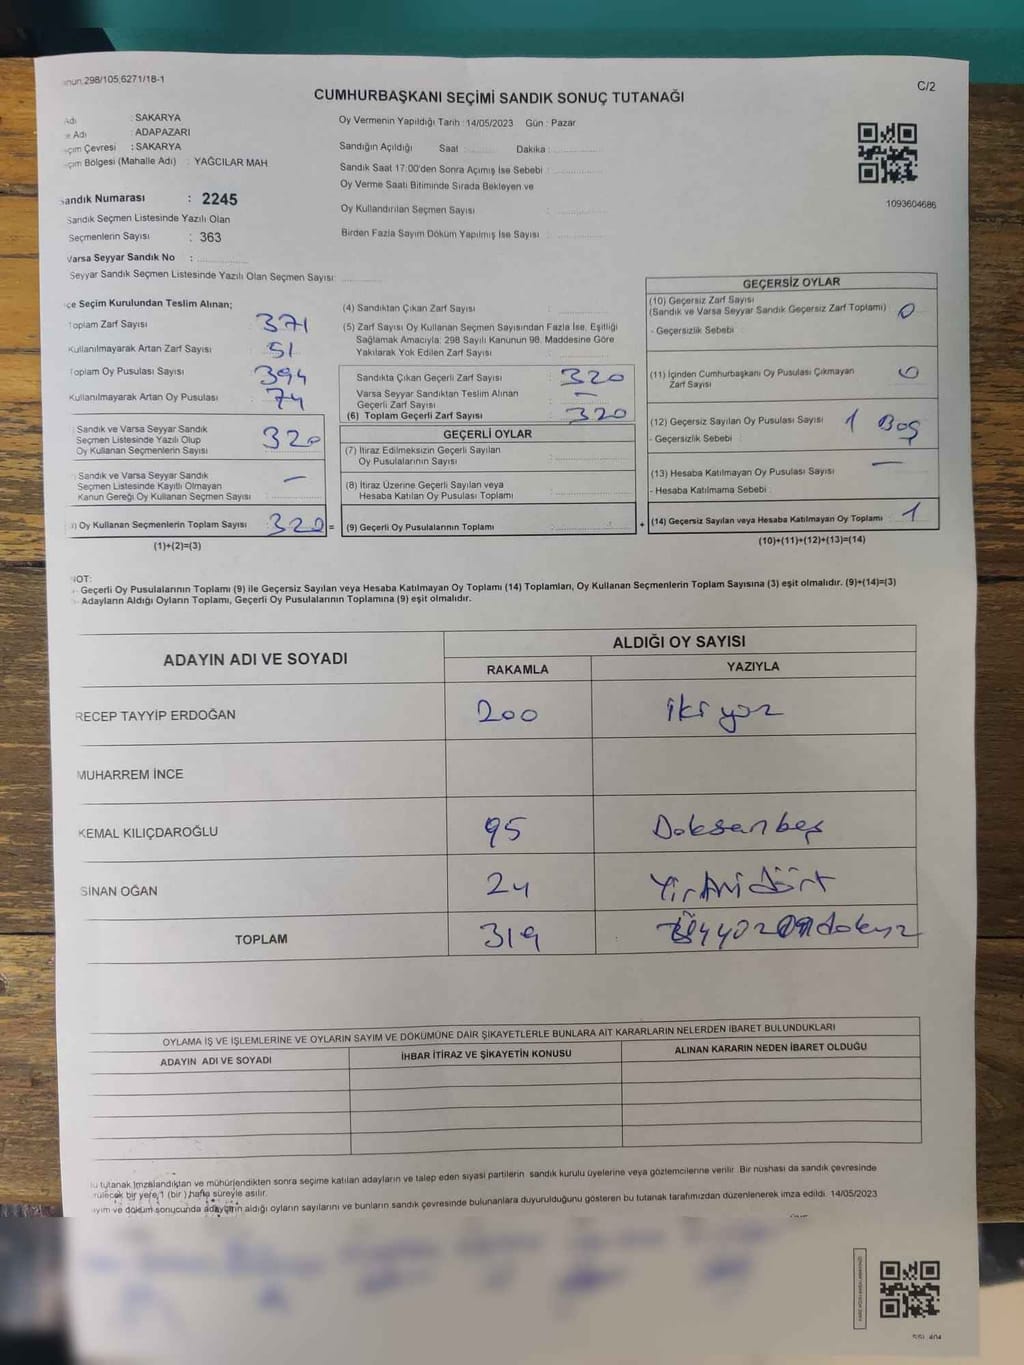 298/105,6271/18-1
C/2
CUMHURBAŞKANI SEÇİMİ SANDIK SONUÇ TUTANAĞI
Adı : SAKARYA
Adı : ADAPAZARI
Çevresi : SAKARYA
Bölgesi (Mahalle Adı) : YAĞCILAR MAH
Sandık Numarası : 2245
Sandık Seçmen Listesinde Yazılı Olan
Seçmenlerin Sayısı : 363
Varsa Seyyar Sandık No :
Seyyar Sandık Seçmen Listesinde Yazılı Olan Seçmen Sayısı:
Oy Vermenin Yapıldığı Tarih : 14/05/2023 Gün : Pazar
Sandığın Açıldığı Saat : Dakika :
Sandık Saat 17:00'den Sonra Açımış İse Sebebi :
Oy Verme Saati Bitiminde Sırada Bekleyen ve
Oy Kullandırılan Seçmen Sayısı :
Birden Fazla Sayım Döküm Yapılmış İse Sayısı :
1093604686
Seçim Kurulundan Teslim Alınan;
Toplam Zarf Sayısı 371
Kullanılmayarak Artan Zarf Sayısı 51
Toplam Oy Pusulası Sayısı 394
Kullanılmayarak Artan Oy Pusulası 74
Sandık ve Varsa Seyyar Sandık
Seçmen Listesinde Yazılı Olup
Oy Kullanan Seçmenlerin Sayısı 320
Sandık ve Varsa Seyyar Sandık
Seçmen Listesinde Kayıtlı Olmayan
Kanun Gereği Oy Kullanan Seçmen Sayısı —
Oy Kullanan Seçmenlerin Toplam Sayısı 320 =
(1)+(2)=(3)
(4) Sandıktan Çıkan Zarf Sayısı :
(5) Zarf Sayısı Oy Kullanan Seçmen Sayısından Fazla İse, Eşitliği
Sağlamak Amacıyla; 298 Sayılı Kanunun 98. Maddesine Göre
Yakılarak Yok Edilen Zarf Sayısı :
Sandıkta Çıkan Geçerli Zarf Sayısı : 320
Varsa Seyyar Sandıktan Teslim Alınan
Geçerli Zarf Sayısı : —
(6) Toplam Geçerli Zarf Sayısı : 320
GEÇERLİ OYLAR
(7) İtiraz Edilmeksizin Geçerli Sayılan
Oy Pusulalarının Sayısı :
(8) İtiraz Üzerine Geçerli Sayılan veya
Hesaba Katılan Oy Pusulası Toplamı :
(9) Geçerli Oy Pusulalarının Toplamı : +
GEÇERSİZ OYLAR
(10) Geçersiz Zarf Sayısı
(Sandık ve Varsa Seyyar Sandık Geçersiz Zarf Toplamı) : 0
- Geçersizlik Sebebi :
(11) İçinden Cumhurbaşkanı Oy Pusulası Çıkmayan
Zarf Sayısı : 0
(12) Geçersiz Sayılan Oy Pusulası Sayısı : 1 Boş
- Geçersizlik Sebebi :
(13) Hesaba Katılmayan Oy Pusulası Sayısı : —
- Hesaba Katılmama Sebebi :
(14) Geçersiz Sayılan veya Hesaba Katılmayan Oy Toplamı : 1
(10)+(11)+(12)+(13)=(14)
NOT:
Geçerli Oy Pusulalarının Toplamı (9) ile Geçersiz Sayılan veya Hesaba Katılmayan Oy Toplamı (14) Toplamları, Oy Kullanan Seçmenlerin Toplam Sayısına (3) eşit olmalıdır. (9)+(14)=(3)
Adayların Aldığı Oyların Toplamı, Geçerli Oy Pusulalarının Toplamına (9) eşit olmalıdır.
ADAYIN ADI VE SOYADI
ALDIĞI OY SAYISI
RAKAMLA YAZIYLA
RECEP TAYYİP ERDOĞAN 200 iki yüz
MUHARREM İNCE
KEMAL KILIÇDAROĞLU 95 Doksanbeş
SİNAN OĞAN 24 Yirmi dört
TOPLAM 319
OYLAMA İŞ VE İŞLEMLERİNE VE OYLARIN SAYIM VE DÖKÜMÜNE DAİR ŞİKAYETLERLE BUNLARA AİT KARARLARIN NELERDEN İBARET BULUNDUKLARI
ADAYIN ADI VE SOYADI İHBAR İTİRAZ VE ŞİKAYETİN KONUSU ALINAN KARARIN NEDEN İBARET OLDUĞU
tutanak İmzalandıktan ve mühürlendikten sonra seçime katılan adayların ve talep eden siyasi partilerin sandık kurulu üyelerine veya gözlemcilerine verilir. Bir nüshası da sandık çevresinde
bir yere 1 (bir) hafta süreyle asılır.
ve döküm sonucunda adayların aldığı oyların sayılarını ve bunların sandık çevresinde bulunanlara duyurulduğunu gösteren bu tutanak tarafımızdan düzenlenerek imza edildi. 14/05/2023